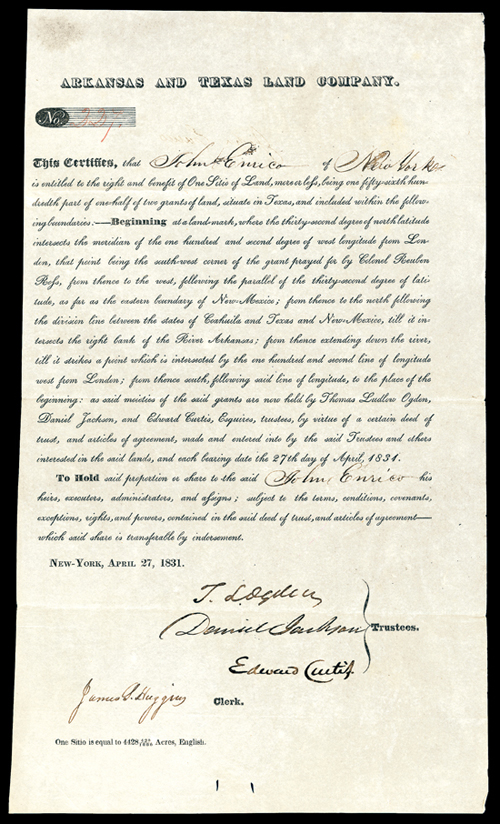 ARKANSAS AND TEXAS LAND COMPANY.
No.
This Certifies, that John Enrico of New York
is entitled to the right and benefit of One Sitio of Land, more or less, being one fifty-sixth hun-
dredth part of one-half of two grants of land, situate in Texas, and included within the follow-
ing boundaries:—Beginning at a land-mark, where the thirty-second degree of north latitude
intersects the meridian of the one hundred and second degree of west longitude from Lon-
don, that point being the south-west corner of the grant prayed for by Colonel Reuben
Ross, from thence to the west, following the parallel of the thirty-second degree of lati-
tude, as far as the eastern boundary of New-Mexico; from thence to the north following
the division line between the states of Coahuila and Texas and New-Mexico, till it in-
tersects the right bank of the River Arkansas; from thence extending down the river,
till it strikes a point which is intersected by the one hundred and second line of longitude
west from London; from thence south, following said line of longitude, to the place of the
beginning: as said moieties of the said grants are now held by Thomas Ludlow Ogden,
Daniel Jackson, and Edward Curtis, Esquires, trustees, by virtue of a certain deed of
trust, and articles of agreement, made and entered into by the said Trustees and others
interested in the said lands, and each bearing date the 27th day of April, 1831.
To Hold said proportion or share to the said John Enrico his
heirs, executors, administrators, and assigns; subject to the terms, conditions, covenants,
exceptions, rights, and powers, contained in the said deed of trust, and articles of agreement—
which said share is transferable by indorsement.
NEW-YORK, APRIL 27, 1831.
T. L. Ogden
Daniel Jackson
Trustees.
Edward Curtis
James S. Huggins
Clerk.
One Sitio is equal to 4428 Acres, English.